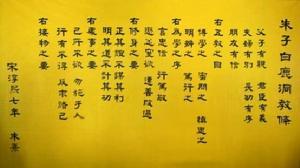 朱子白鹿洞教條
父子有親 君臣有義
夫婦有別 長幼有序
朋友有信
右五教之目
博學之 審問之 慎思之
明辨之 篤行之
右為學之序
言忠信 行篤敬
懲忿窒慾 遷善改過
右修身之要
正其誼不謀其利
明其道不計其功
右處事之要
己所不欲 勿施於人
行有不得 反求諸己
右接物之要
宋淳熙七年 朱熹